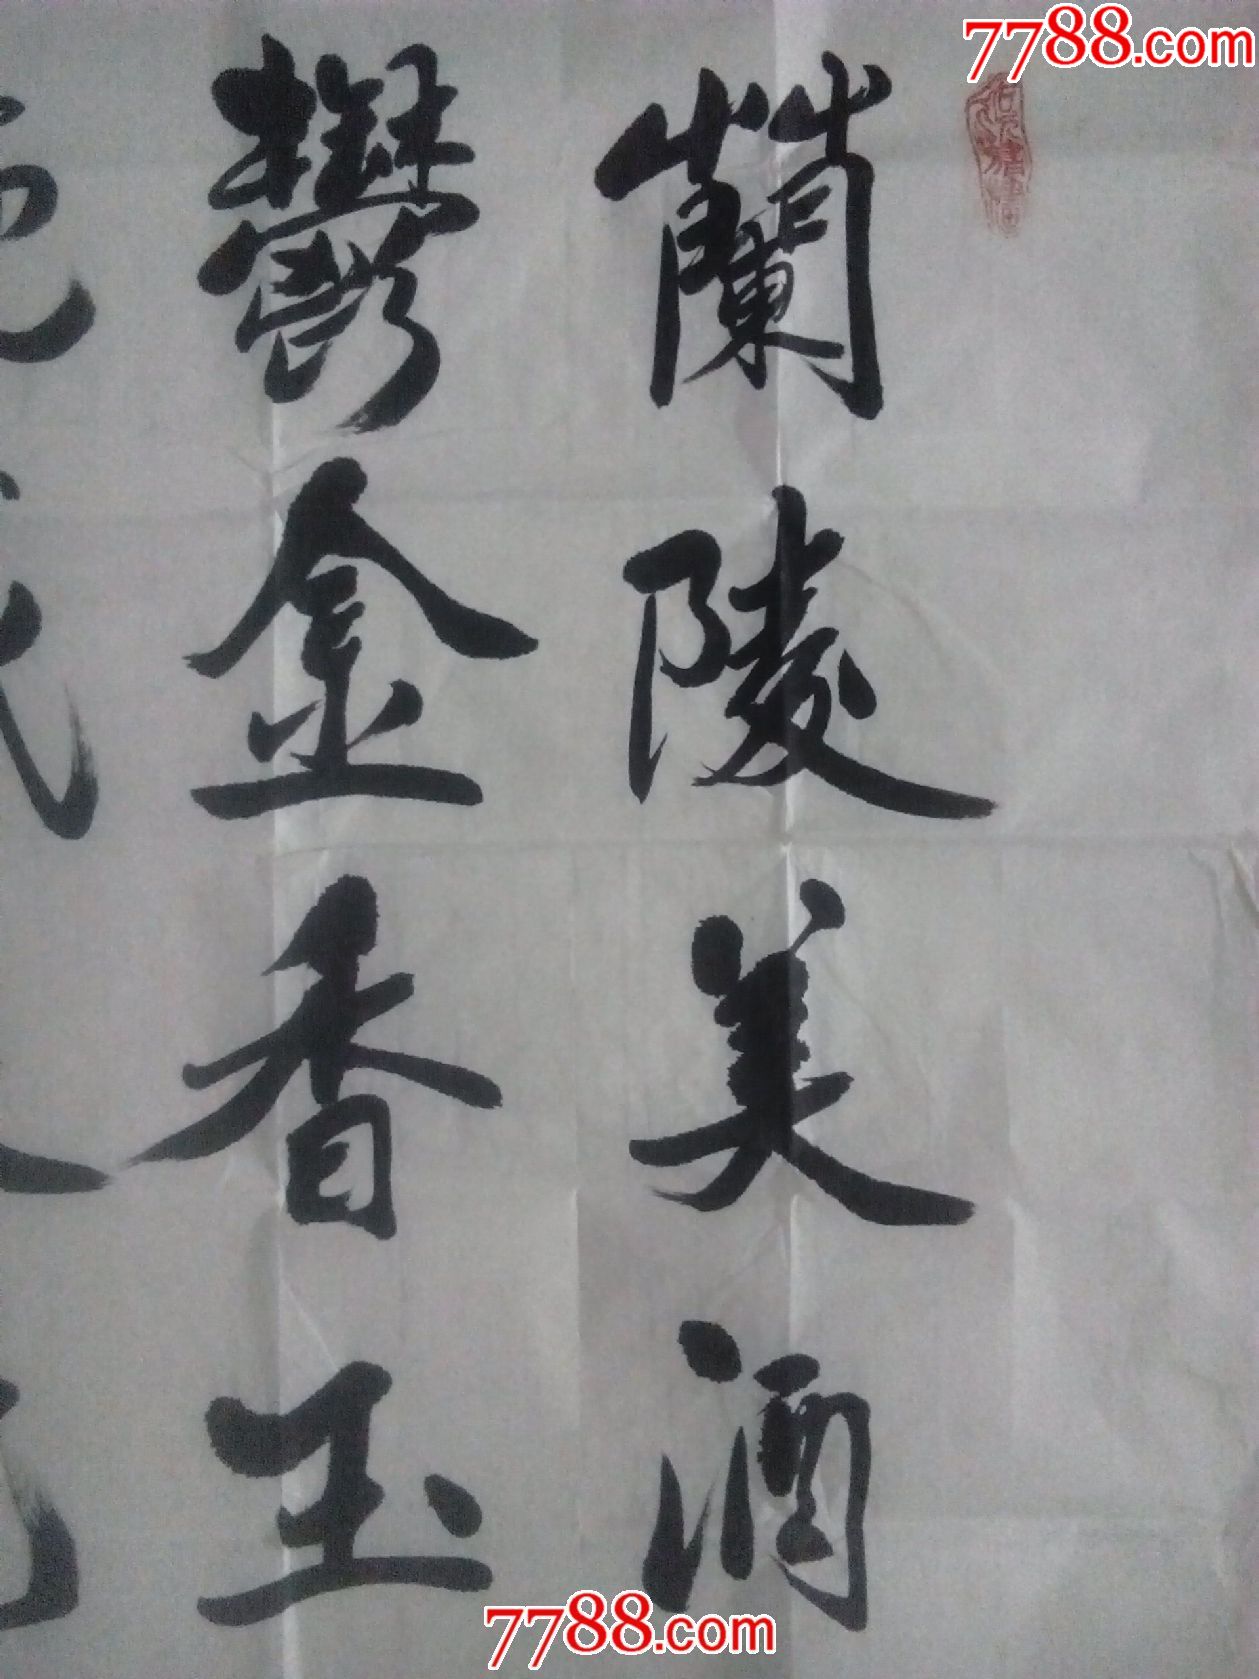 7788.com
蘭陵美酒
鬱金香玉
7788.com